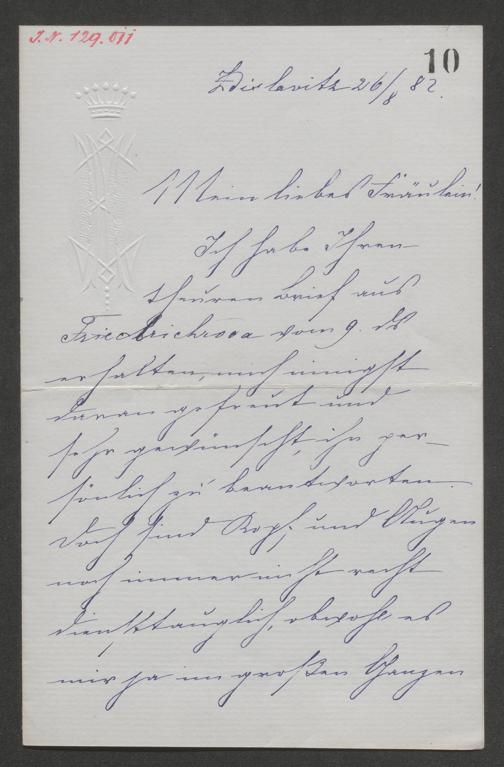 J.N. 129.011
10
Zdislavitz 26/8 82.
Mein liebes Fräulein!
Ich habe Ihren
theuren Brief aus
Friedrichroda vom 9. ds
erhalten, mich innigst
daran gefreut und
sehr gewünscht, ihn per-
sönlich zu beantworten.
Doch sind Kopf und Augen
noch immer nicht recht
diensttauglich, obwohl es
mir ja im großen Ganzen